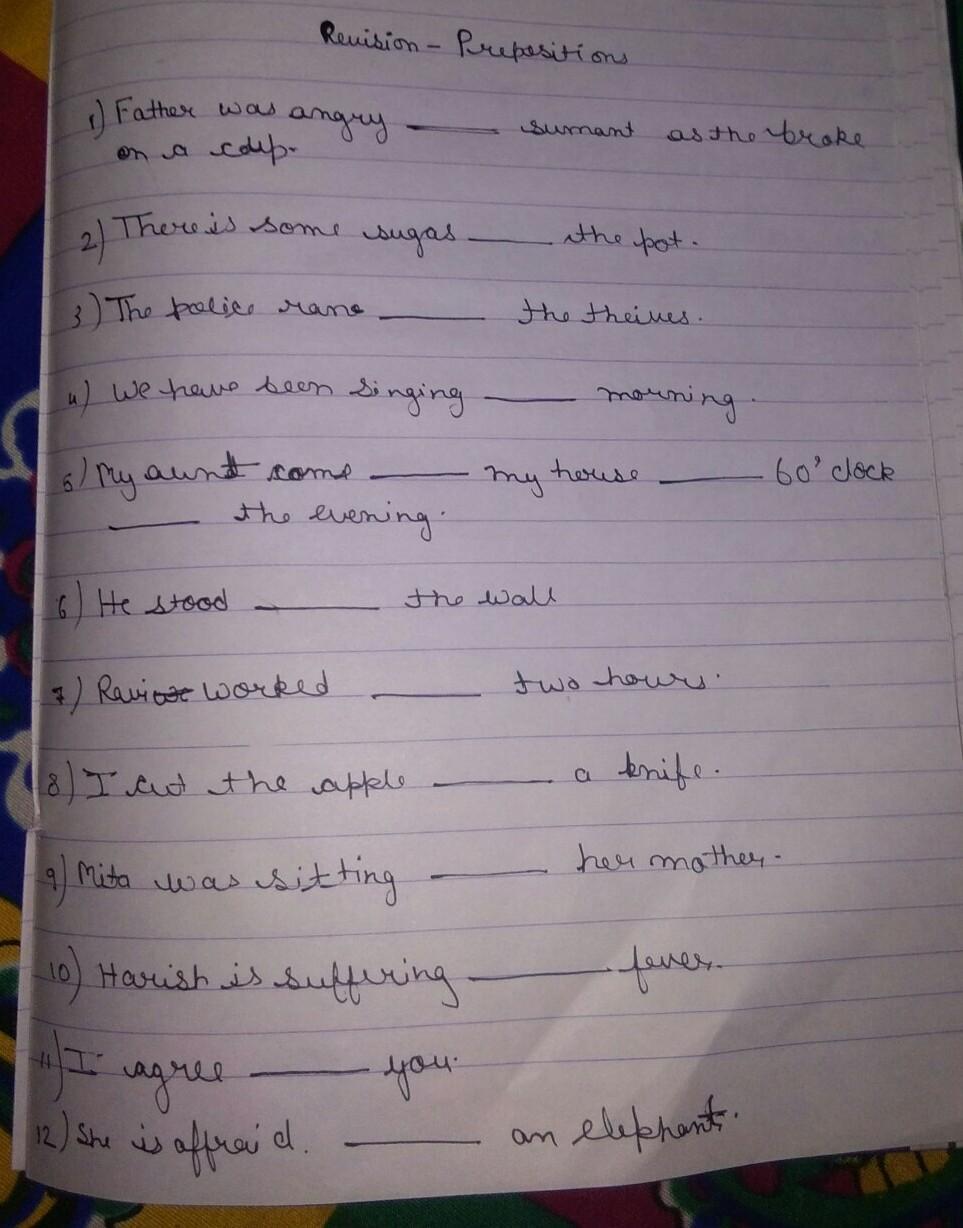 Revision - Prepositions
1) Father was angry ____ sumant as the broke
on a cup.
2) There is some sugas ____ the pot.
3) The police rane ____ the theives.
4) We have been singing ____ morning.
5) My aunt come ____ my house ____ 60'clock
____ the evening.
6) He stood ____ the wall
7) Ravi worked ____ two hours.
8) I cut the apple ____ a knife.
9) Mita was sitting ____ her mother.
10) Harish is suffering ____ fever.
11) I agree ____ you.
12) She is affraid. ____ an elephant.